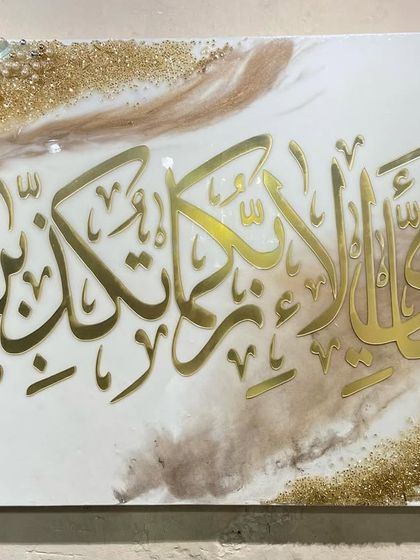 أَيِّ آلَاءِ رَبِّكُمَا تُكَذِّبَا